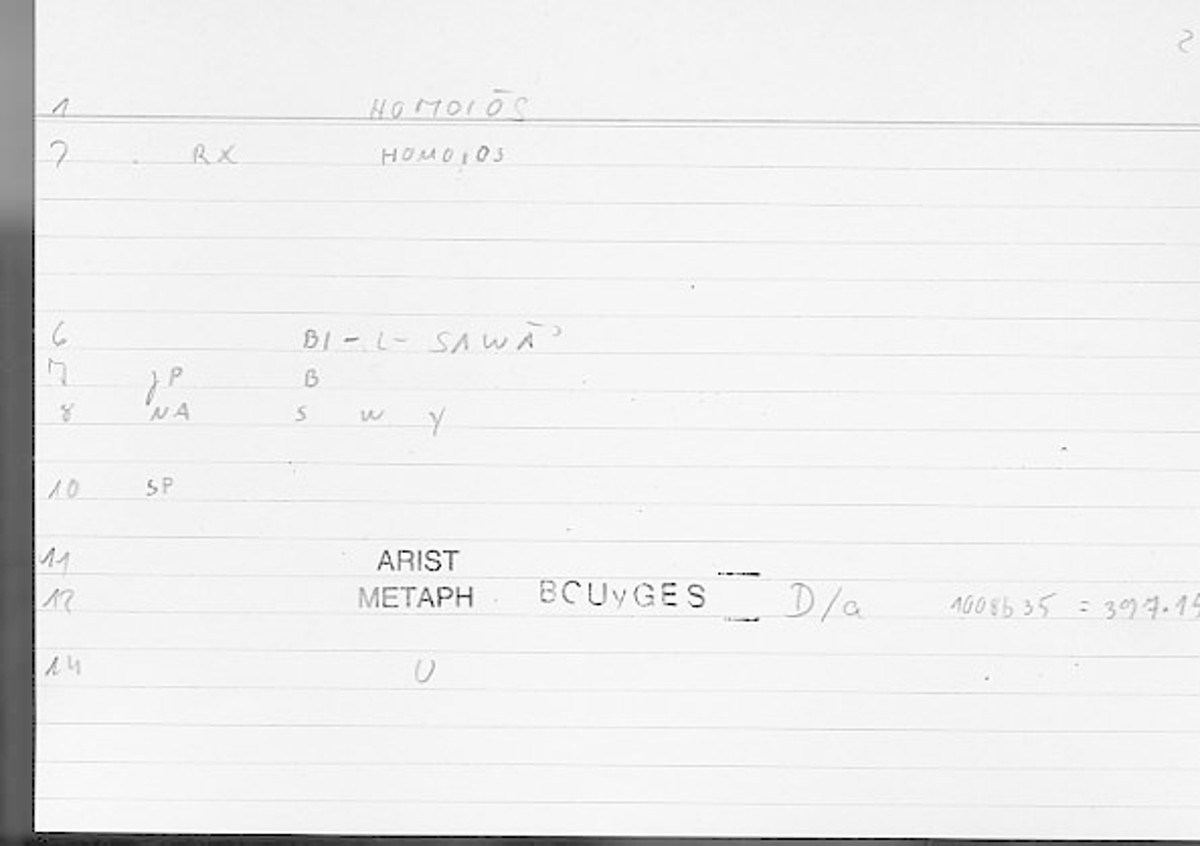 2
1 HOMOIŌS
2 RX HOMOIOS
6 BI-L-SAWĀʾ
7 JP B
8 NA S W Y
10 SP
11 ARIST
12 METAPH BCUyGES D/a 1008b35 = 397.15
14 U